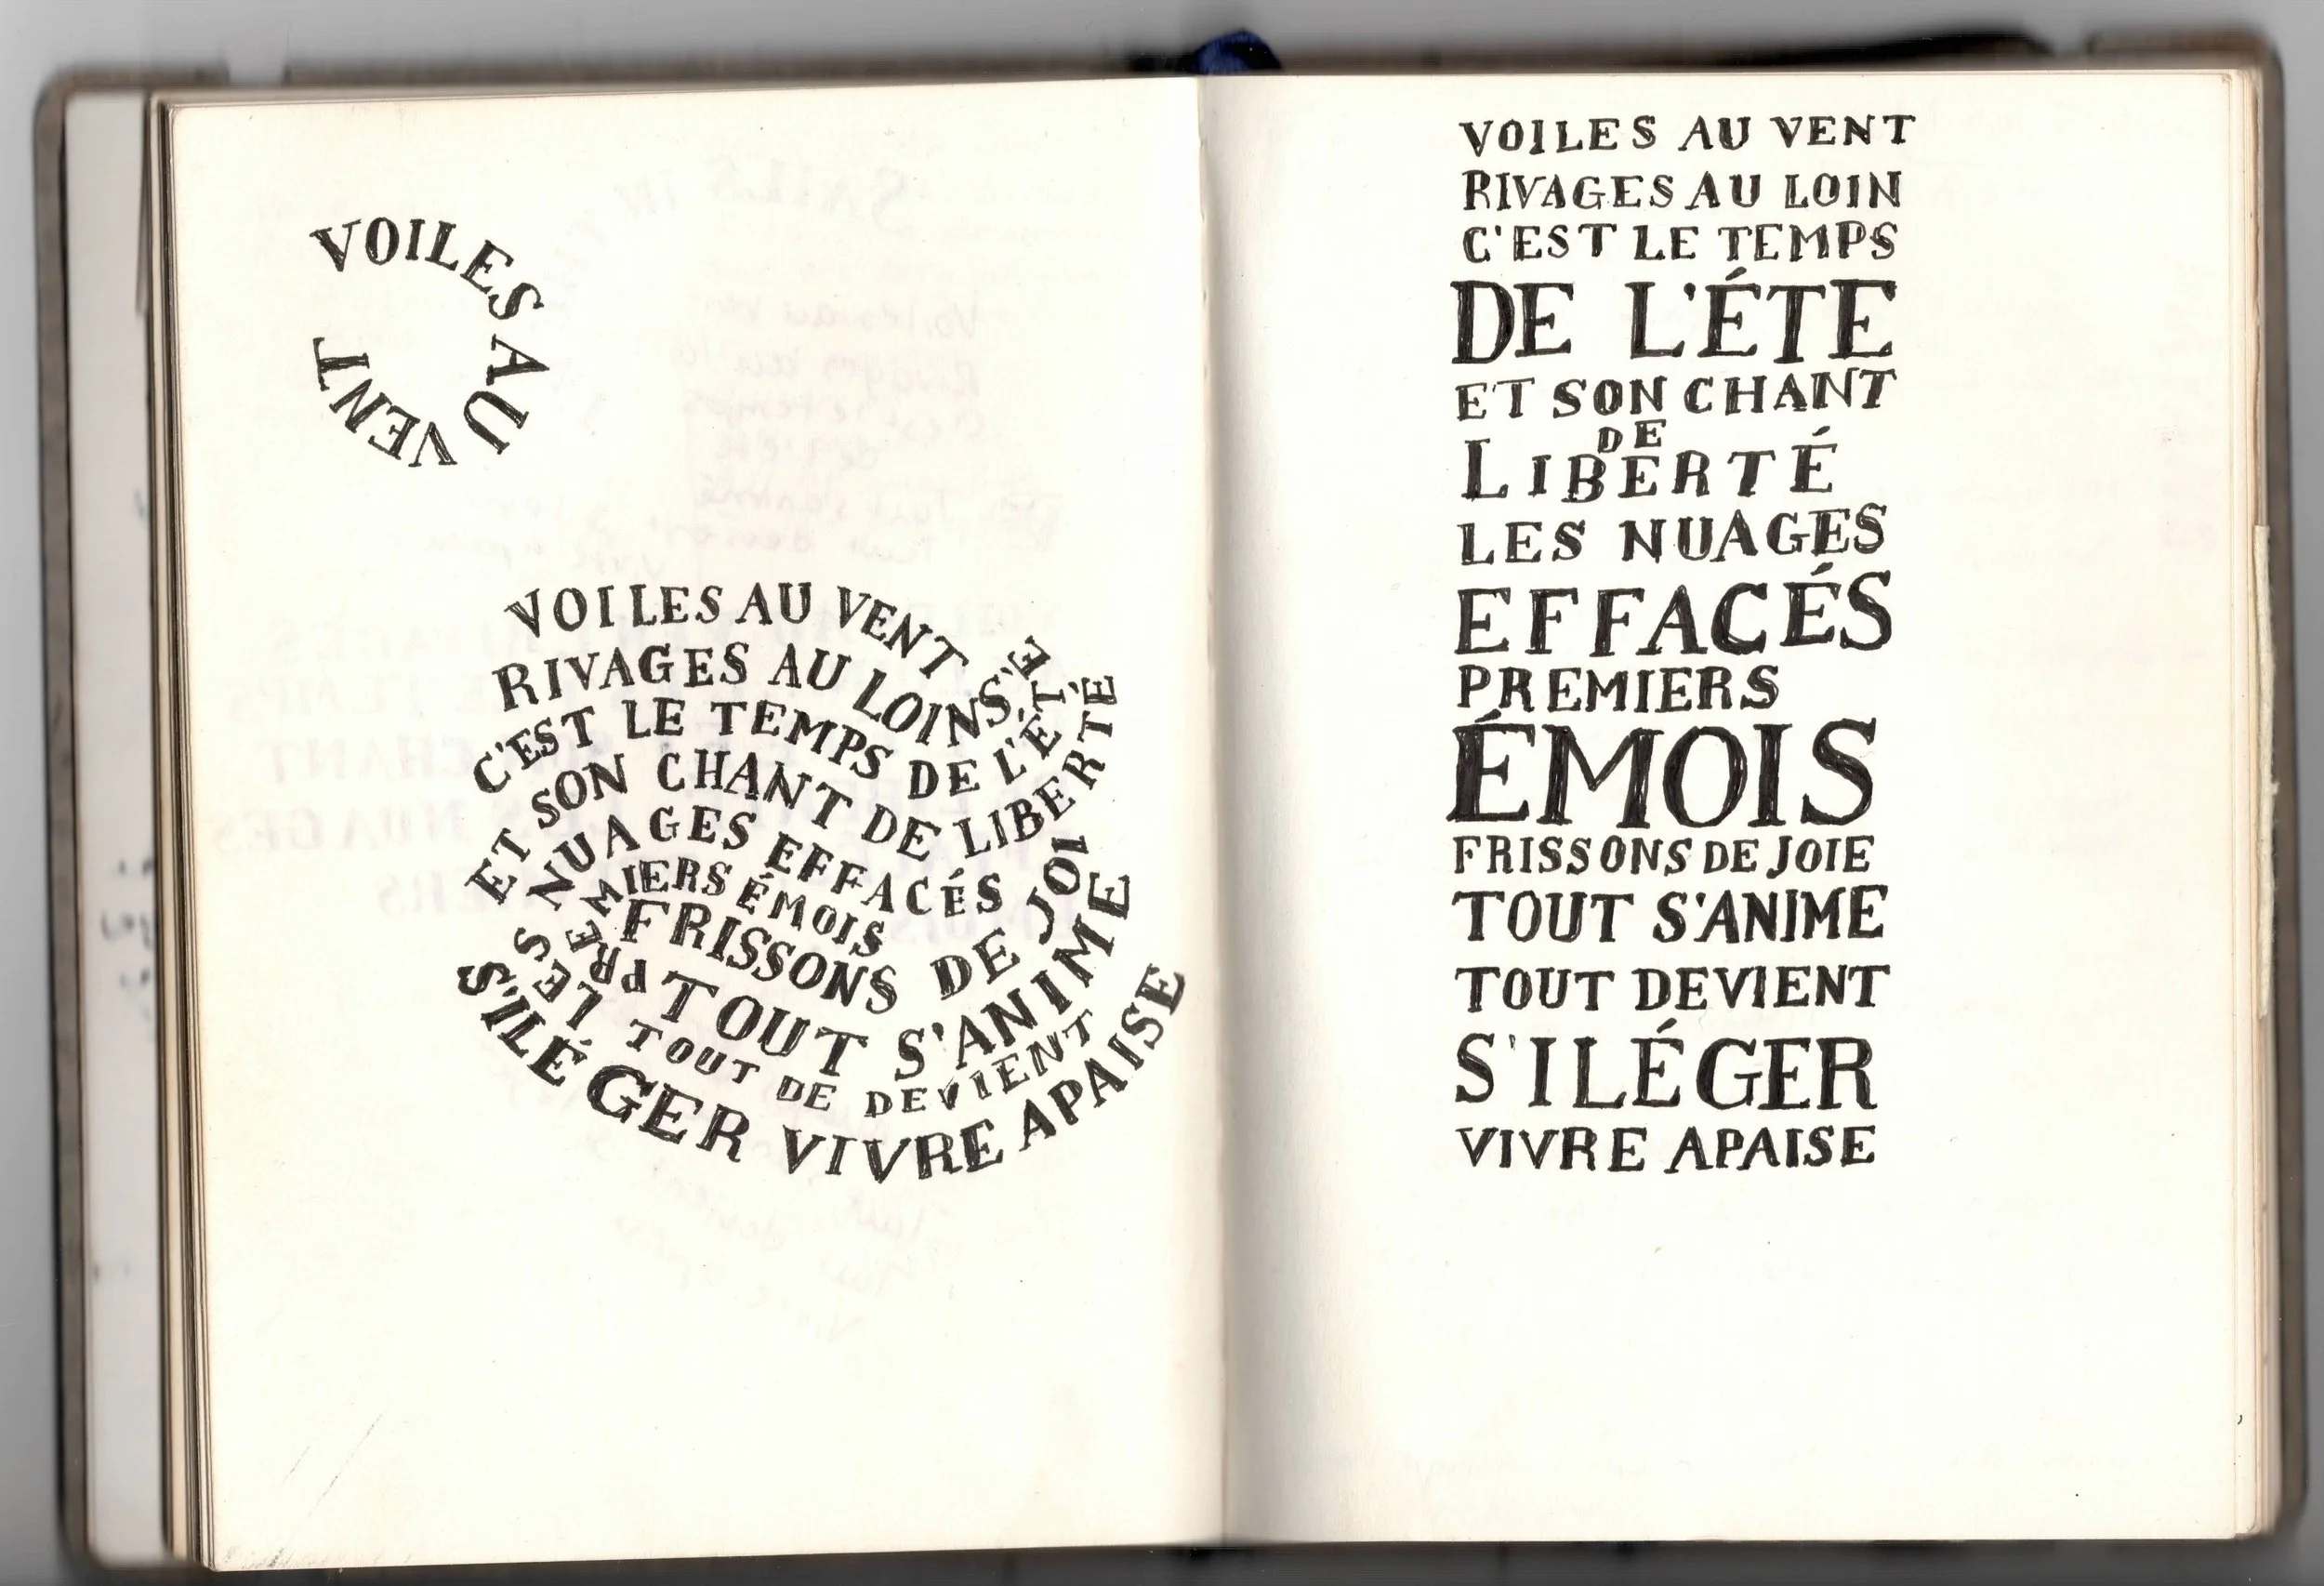 VOILES AU VENT
VOILES AU VENT
RIVAGES AU LOIN S'E
C'EST LE TEMPS DE L'ÉT
ET SON CHANT DE LIBERTÉ
LES NUAGES EFFACÉS
PREMIERS ÉMOIS
FRISSONS DE JOI
TOUT S'ANIME
TOUT DE DEVIENT
S'ILÉGER VIVRE APAISE
VOILES AU VENT
RIVAGES AU LOIN
C'EST LE TEMPS
DE L'ÉTE
ET SON CHANT
DE
LIBERTÉ
LES NUAGES
EFFACÉS
PREMIERS
ÉMOIS
FRISSONS DE JOIE
TOUT S'ANIME
TOUT DEVIENT
S'ILÉGER
VIVRE APAISE